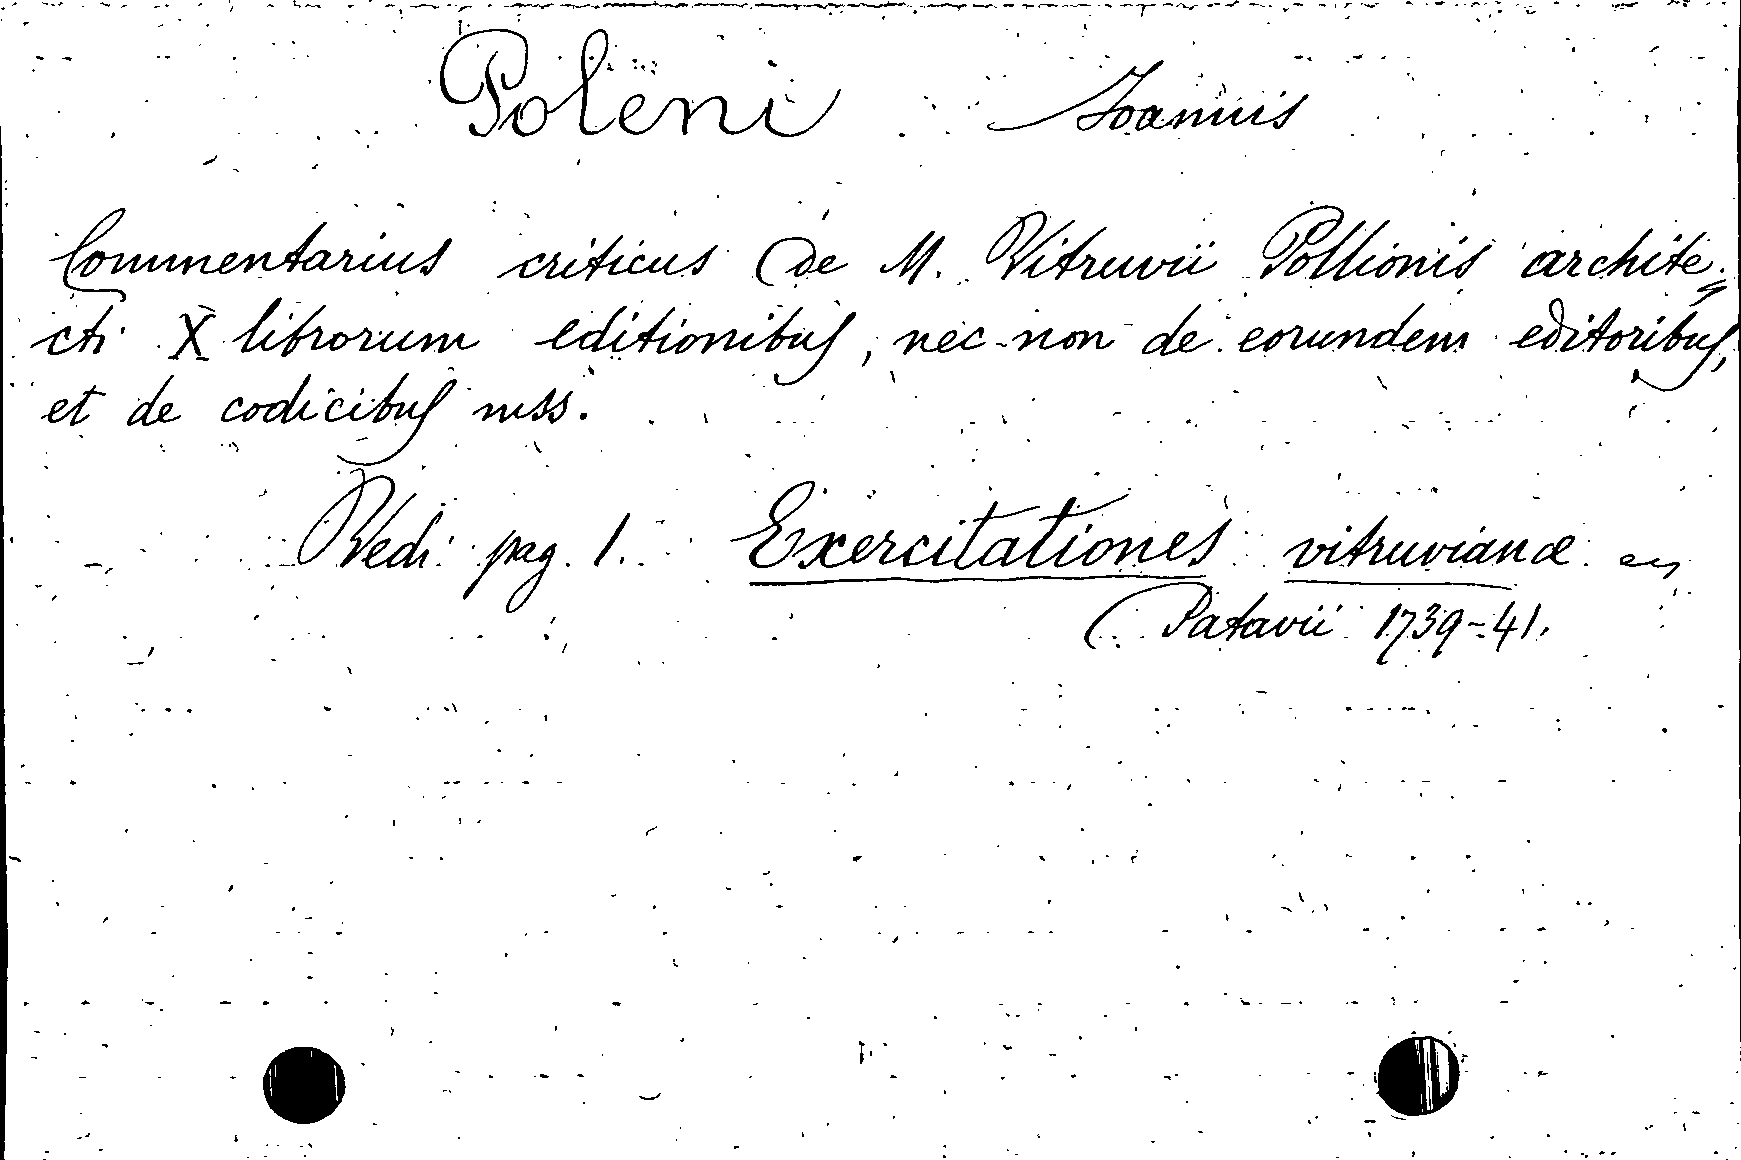 Poleni Joannis
Commentarius criticus de M. Vitruvii Pollionis archite=
cti X librorum editionibus, nec non de eorundem editoribus,
et de codicibus mss.
Vedi pag. 1. Exercitationes vitruvianæ
Patavii 1739-41.